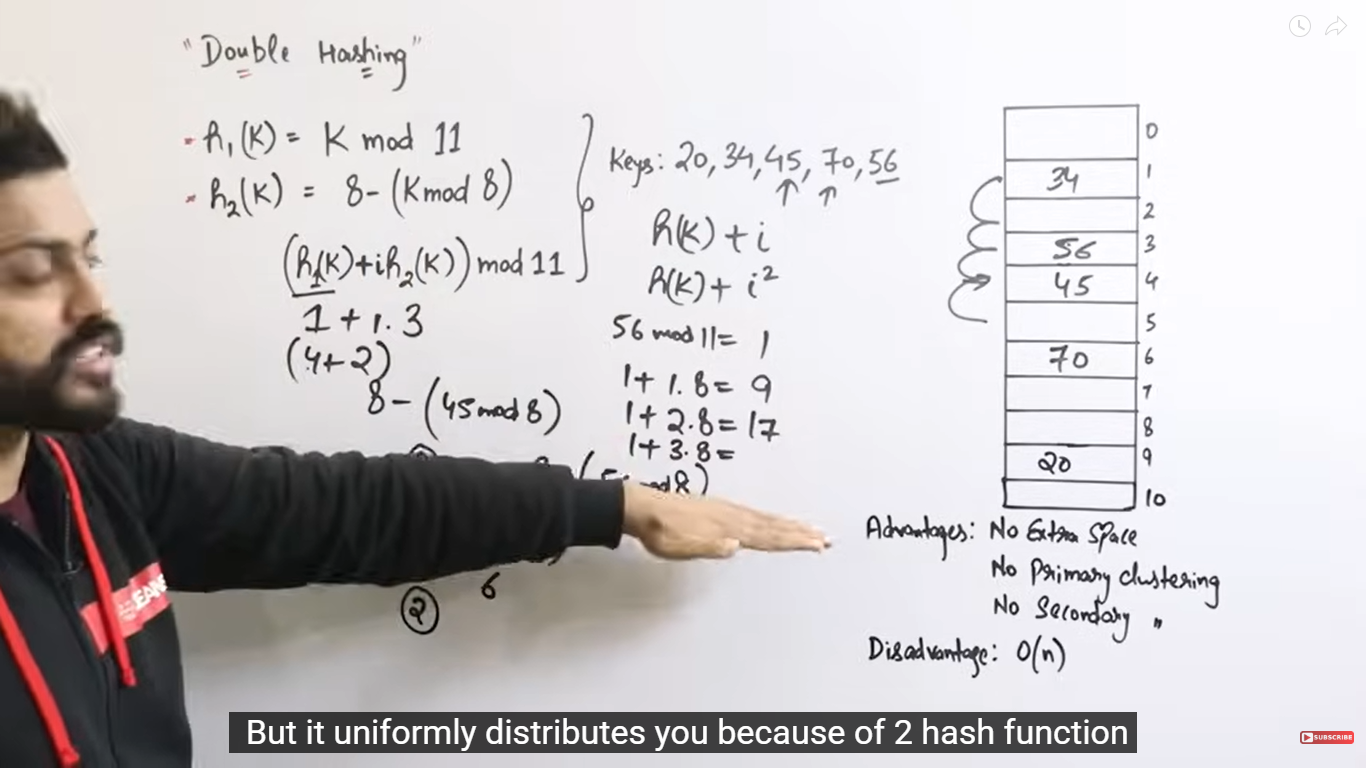 "Double Hashing"
h₁(K) = K mod 11
h₂(K) = 8-(K mod 8)
(h₁(K)+ih₂(K)) mod 11
1 + 1.3
(4+2)
8 - (45 mod 8)
6
2
Keys: 20, 34, 45, 70, 56
h(K) + i
h(K) + i²
56 mod 11= 1
1+ 1.8= 9
1+ 2.8= 17
1+ 3.8=
mod 8)
0
34 1
2
56 3
45 4
5
70 6
7
8
20 9
10
Advantages: No Extra Space
No Primary clustering
No Secondary "
Disadvantage: O(n)
But it uniformly distributes you because of 2 hash function
SUBSCRIBE